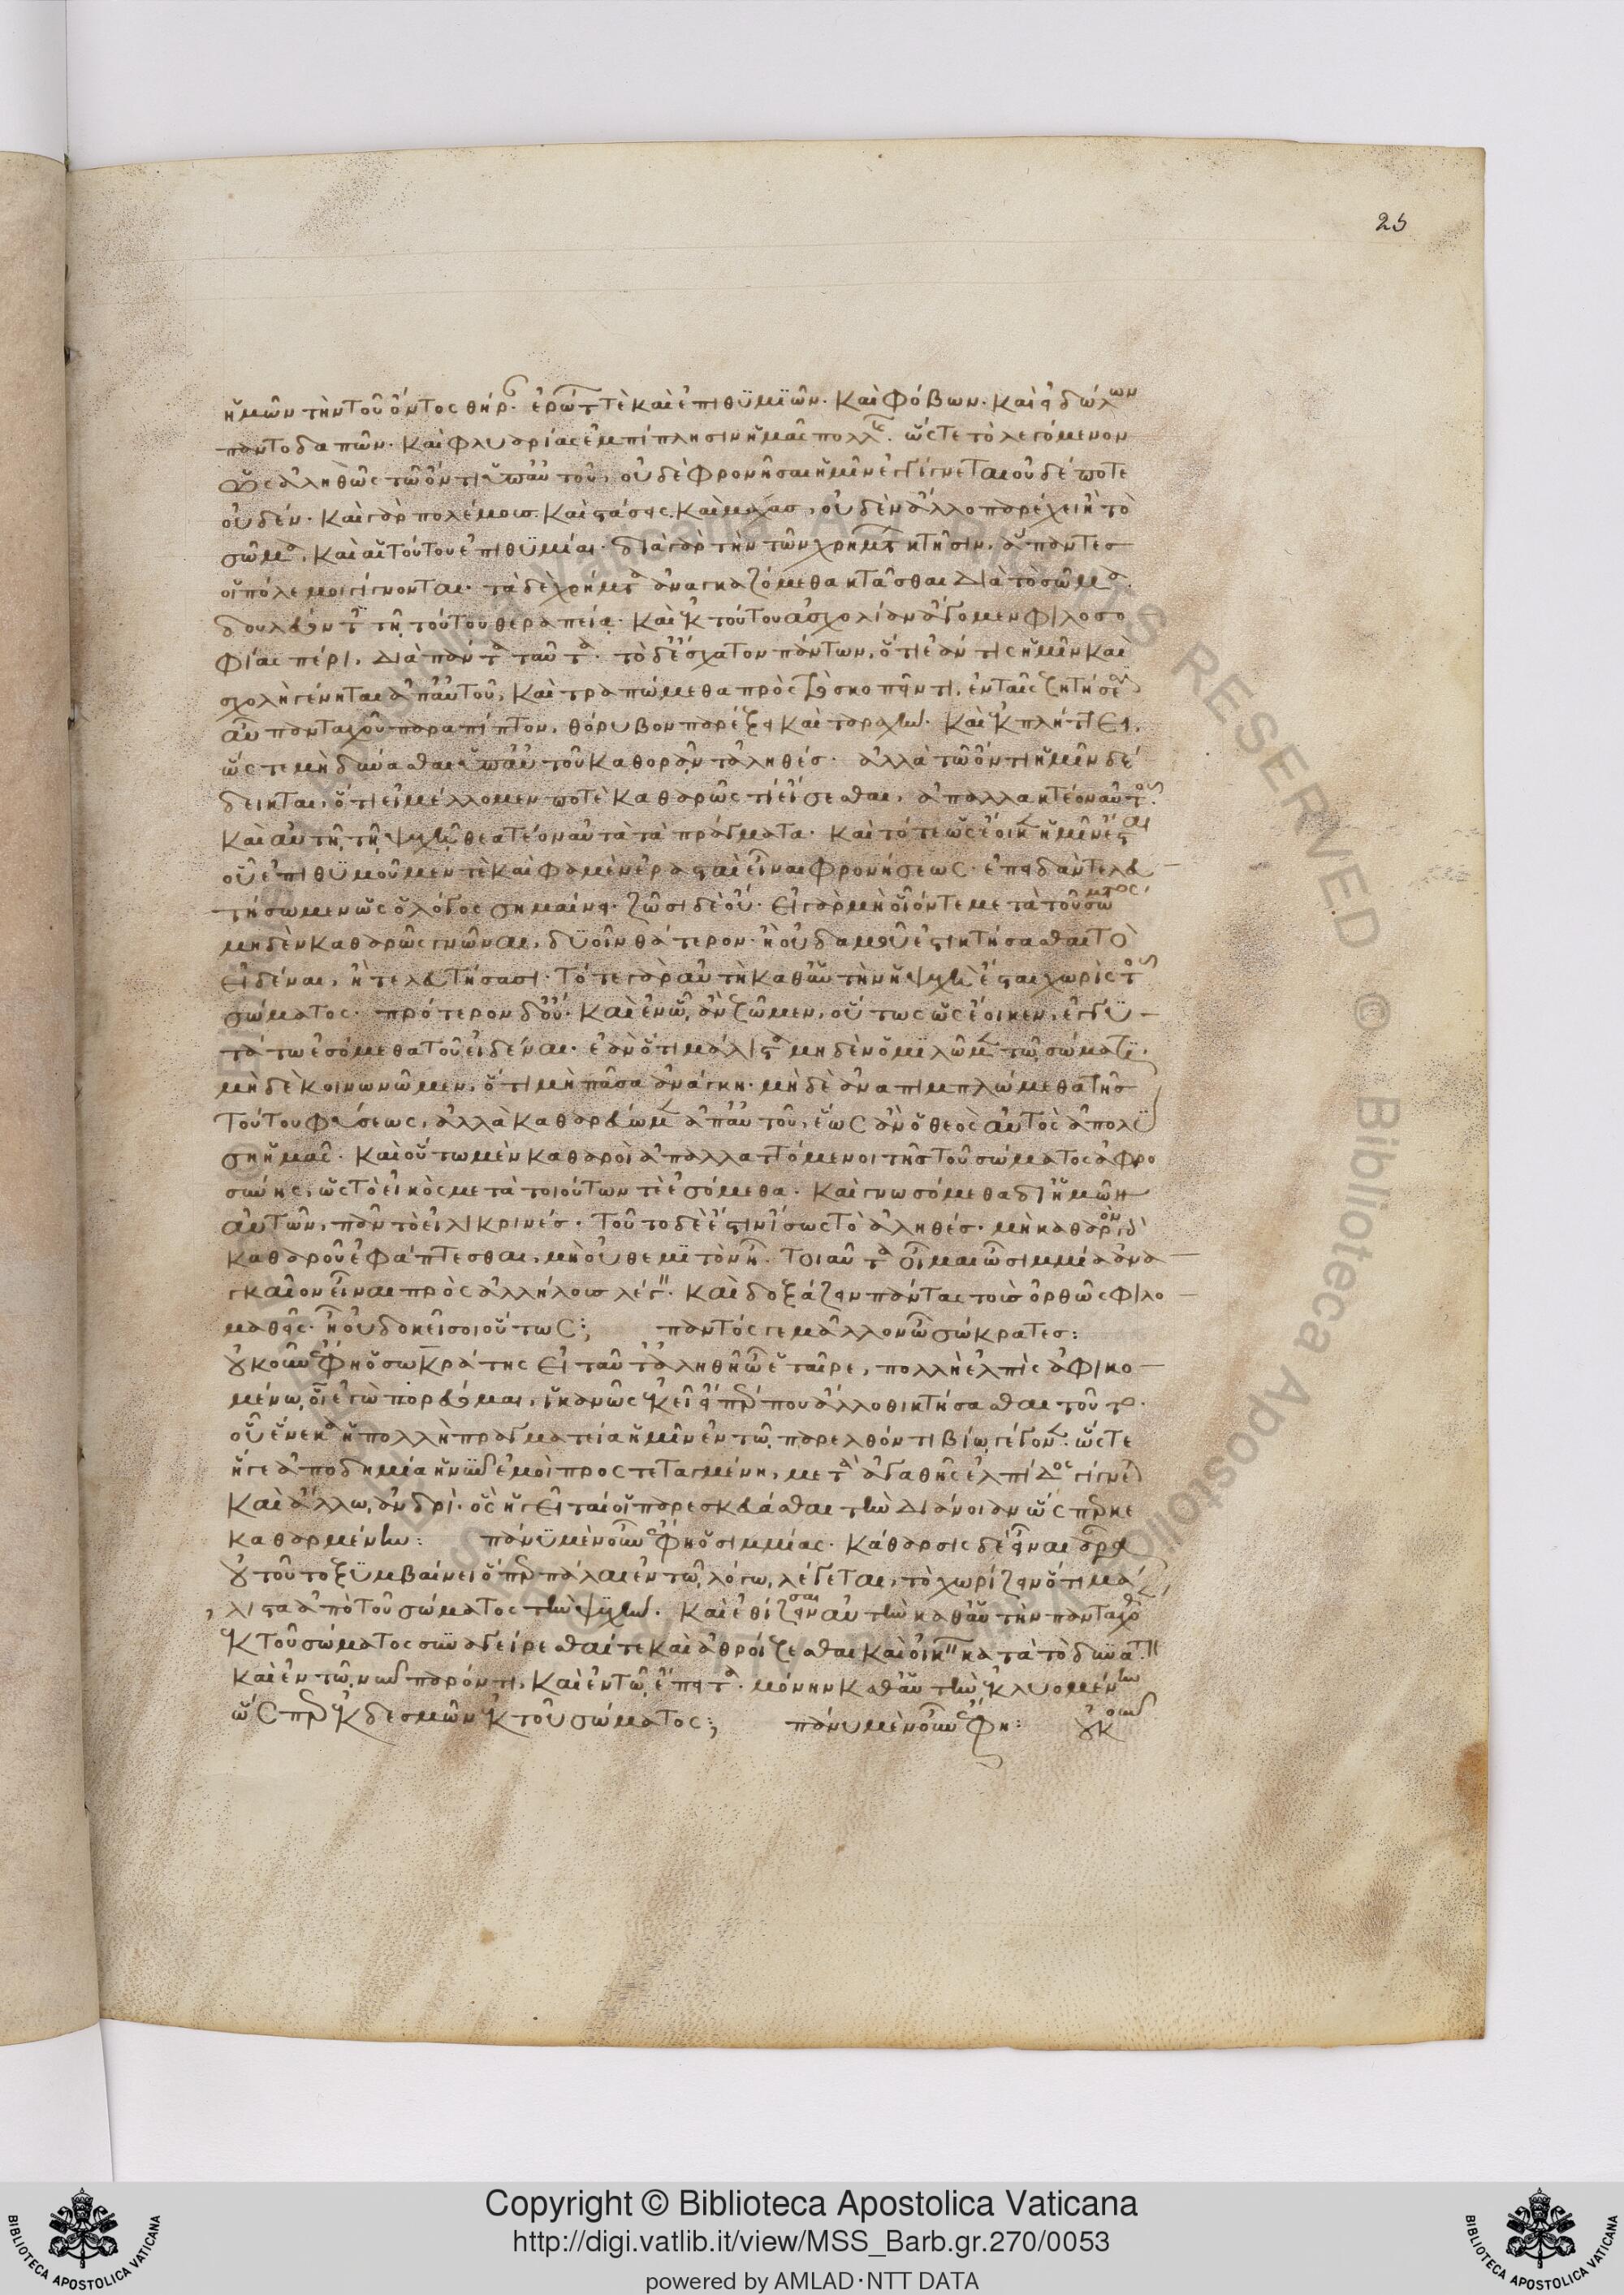 25
ἡμῶν τὴν τοῦ ὄντος θήρ. ἐρώτ τὲ καὶ ἐπιθυμϊῶν. καὶ φόβων. καὶ εἰδώλων
παντοδαπῶν. καὶ φλυαρίας ἐμπίπλησιν ἡμᾶς πολλῆς. ὥστε τὸ λεγόμενον
ὡς ἀληθῶς τῶ ὄντι ὑπ' αὐτοῦ, οὐδὲ φρονῆσαι ἡμῖν ἐγγίγνεται οὐδέποτε
οὐδέν. καὶ γὰρ πολέμοισ. καὶ στάσεις. καὶ μάχασ, οὐδὲν ἄλλο παρέχει ἢ τὸ
σῶμα. καὶ αἱ τούτου ἐπιθυμίαι. διὰ γὰρ τὴν τῶν χρημτ κτῆσιν, ἅπαντεσ
οἱ πόλεμοι γίγνονται. τὰ δὲ χρήματα ἀναγκαζόμεθα κτᾶσθαι διὰ τὸ σῶμα.
δουλεύοντ τῆ τούτου θεραπεία. καὶ ἐκ τούτου ἀσχολίαν ἄγομεν φιλοσο
φίας πέρι, διὰ πάντα ταῦτα. τὸ δ' ἔσχατον πάντων, ὅτι ἐάν τις ἡμῖν καὶ
σχολὴ γένηται ἀπ' αὐτοῦ, καὶ τραπώμεθα πρὸς τὸ σκοπεῖν τι, ἐν ταῖς ζητήσε
αὖ πανταχοῦ παραπίπτον, θόρυβον παρέξει καὶ ταραχὴν. καὶ ἐκπλήττει,
ὥστε μὴ δύνασθαι ὑπ' αὐτοῦ καθορᾶν τἀληθέσ. ἀλλὰ τῶ ὄντι ἡμῖν δέ
δεικται, ὅτι εἰ μέλλομεν ποτὲ καθαρῶς τί εἴσεσθαι, ἀπαλλακτέον αὐτοῦ.
καὶ αὐτῆ τῆ ψυχῆ θεατέον αὐτὰ τὰ πράγματα. καὶ τότε ὡς ἔοικεν ἡμῖν ἔσται
οὗ ἐπιθυμοῦμεν τὲ καὶ φαμὲν ἐρασταὶ εἶναι φρονήσεως. ἐπειδὰν τελευ
τήσωμεν ὡς ὁ λόγος σημαίνει. ζῶσι δὲ οὔ. εἰ γὰρ μὴ οἷόντε μετὰ τοῦ σώματος
μηδὲν καθαρῶς γνῶναι, δυοῖν θάτερον. ἢ οὐδαμοῦ ἔστι κτήσασθαι τὸ
εἰδέναι, ἢ τελευτήσασι. τότε γὰρ αὐτὴ καθ' αὑτὴν ἡ ψυχὴ ἔσται χωρὶς τοῦ
σώματος. πρότερον δ' οὔ. καὶ ἐν ᾧ ἂν ζῶμεν, οὕτως ὡς ἔοικεν, ἐγγυ
τάτω ἐσόμεθα τοῦ εἰδέναι. ἐὰν ὅτι μάλιστα μηδὲν ὁμιλῶμεν τῶ σώματι.
μὴ δὲ κοινωνῶμεν, ὅτι μὴ πᾶσα ἀνάγκη. μὴ δὲ ἀναπιμπλώμεθα τῆσ
τούτου φύσεως, ἀλλὰ καθαρεύωμεν ἀπ' αὐτοῦ, ἕως ἂν ὁ θεὸς αὐτὸς ἀπολύ
ση ἡμᾶς. καὶ οὕτω μὲν καθαροὶ ἀπαλλαττόμενοι τῆσ τοῦ σώματος ἀφρο
σύνης, ὡς τὸ εἰκὸς μετὰ τοιούτων τὲ ἐσόμεθα. καὶ γνωσόμεθα δι' ἡμῶν
αὐτῶν, πᾶν τὸ εἰλικρινέσ. τοῦτο δὲ ἔστιν ἴσως τὸ ἀληθέσ. μὴ καθαρῶ
καθαροῦ ἐφάπτεσθαι, μὴ οὐ θεμιτὸν ἦ. τοιαῦτα οἶμαι ὦ σιμμία ἀνα
γκαῖον εἶναι πρὸς ἀλλήλουσ λέγειν. καὶ δοξάζειν πάντας τοὺσ ὀρθῶς φιλο
μαθεῖς. ἢ οὐ δοκεῖ σοι οὕτως; παντός γε μᾶλλον ὦ σώκρατεσ:
οὐκοῦν ἔφη ὁ σωκράτης εἰ ταῦτα ἀληθῆ ὦ ἑταῖρε, πολλὴ ἐλπὶς ἀφικο
μένω οἷ ἐγὼ πορεύομαι, ἱκανῶς ἐκεῖ εἴπερ που ἄλλοθι κτήσασθαι τοῦτο.
οὗ ἕνεκα ἡ πολλὴ πραγματεία ἡμῖν ἐν τῶ παρελθόντι βίω γέγονεν. ὥστε
ἥ γε ἀποδημία ἡ νῦν ἐμοὶ προστεταγμένη, μετὰ ἀγαθῆς ἐλπίδος γίγνε
καὶ ἄλλω ἀνδρὶ. ὃς ἡγεῖταί οἱ παρεσκευάσθαι τὴν διάνοιαν ὥσπερ κε
καθαρμένην: πάνυ μὲν οὖν ἔφη ὁ σιμμίας. κάθαρσις δὲ εἶναι ἆρα
οὐ τοῦτο ξυμβαίνει ὅπερ πάλαι ἐν τῶ λόγω λέγεται, τὸ χωρίζειν ὅτι μά
λιστα ἀπὸ τοῦ σώματος τὴν ψυχὴν. καὶ ἐθίζειν αὐτὴν καθ' αὑτὴν πανταχό
ἐκ τοῦ σώματος συναγείρεσθαί τε καὶ ἀθροίζεσθαι καὶ οἰκεῖν κατὰ τὸ δυνατ
καὶ ἐν τῶ νῦν παρόντι, καὶ ἐν τῶ ἔπειτα. μόνην καθ' αὑτὴν ἐκλυομένην
ὥσπερ ἐκ δεσμῶν ἐκ τοῦ σώματος; πάνυ μὲν οὖν ἔφη: οὐκοῦν
Copyright © Biblioteca Apostolica Vaticana
http://digi.vatlib.it/view/MSS_Barb.gr.270/0053
powered by AMLAD·NTT DATA
BIBLIOTECA APOSTOLICA VATICANA
BIBLIOTECA APOSTOLICA VATICANA